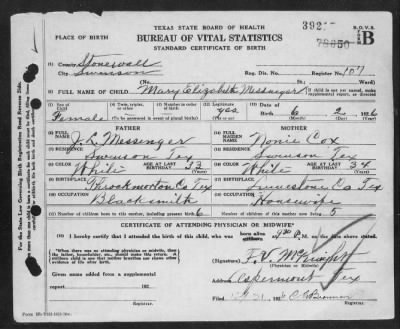 TEXAS STATE BOARD OF HEALTH
BUREAU OF VITAL STATISTICS
STANDARD CERTIFICATE OF BIRTH
392
78050
B.O.V.S.
FORM
B
PLACE OF BIRTH
County Stonewall
City Swenson
Reg. Dis. No.
Register No. 107
Ward)
FULL NAME OF CHILD Mary Elizabeth Messenger
Sex of Child Female
Twin, triplet, or other
Number in order of birth
Legitimate yes
Date of Birth 6 2 1926
FATHER
MOTHER
FULL NAME J. L. Messenger
Nonie Cox
RESIDENCE Swenson Tex
RESIDENCE Swenson Tex
COLOR White
AGE AT LAST BIRTHDAY
COLOR White
AGE AT LAST BIRTHDAY 34
BIRTHPLACE Throckmorton Co Tex
Limestone Co Tex
OCCUPATION Blacksmith
OCCUPATION Housewife
Number of children born to this mother, including present birth 6
Number of children of this mother now living 5
CERTIFICATE OF ATTENDING PHYSICIAN OR MIDWIFE*
I hereby certify that I attended the birth of this child, who was born alive
on the date above stated.
(Signature)
(Physician or Midwife)
Given name added from a supplemental
report 192
Address Aspermont Tex
Registrar.
Registrar.